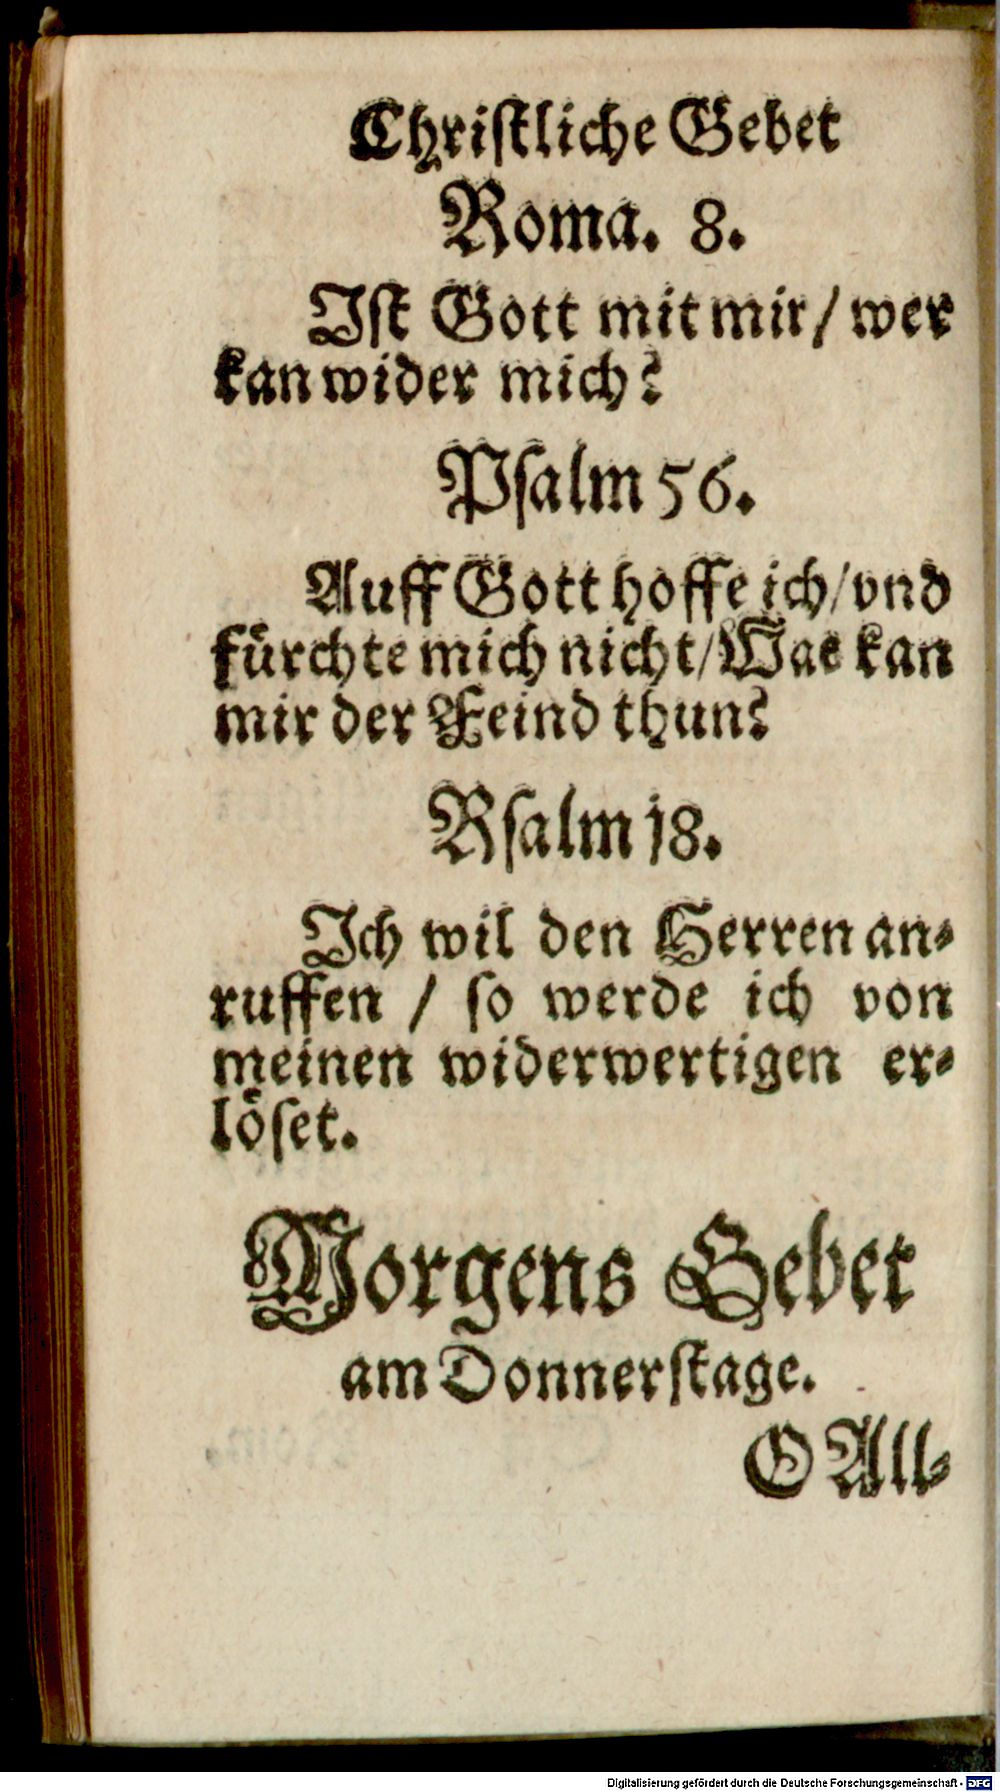 Chriſtliche Gebet
Roma. 8.
Iſt Gott mit mir / wer
kan wider mich?
Pſalm 56.
Auff Gott hoffe ich / vnd
fürchte mich nicht / Was kan
mir der Feind thun?
Rſalm 18.
Ich wil den Herren an⸗
ruffen / ſo werde ich von
meinen widerwertigen er⸗
löſet.
Morgens Gebet
am Donnerſtage.
O All⸗
Digitalisierung gefördert durch die Deutsche Forschungsgemeinschaft - DFG